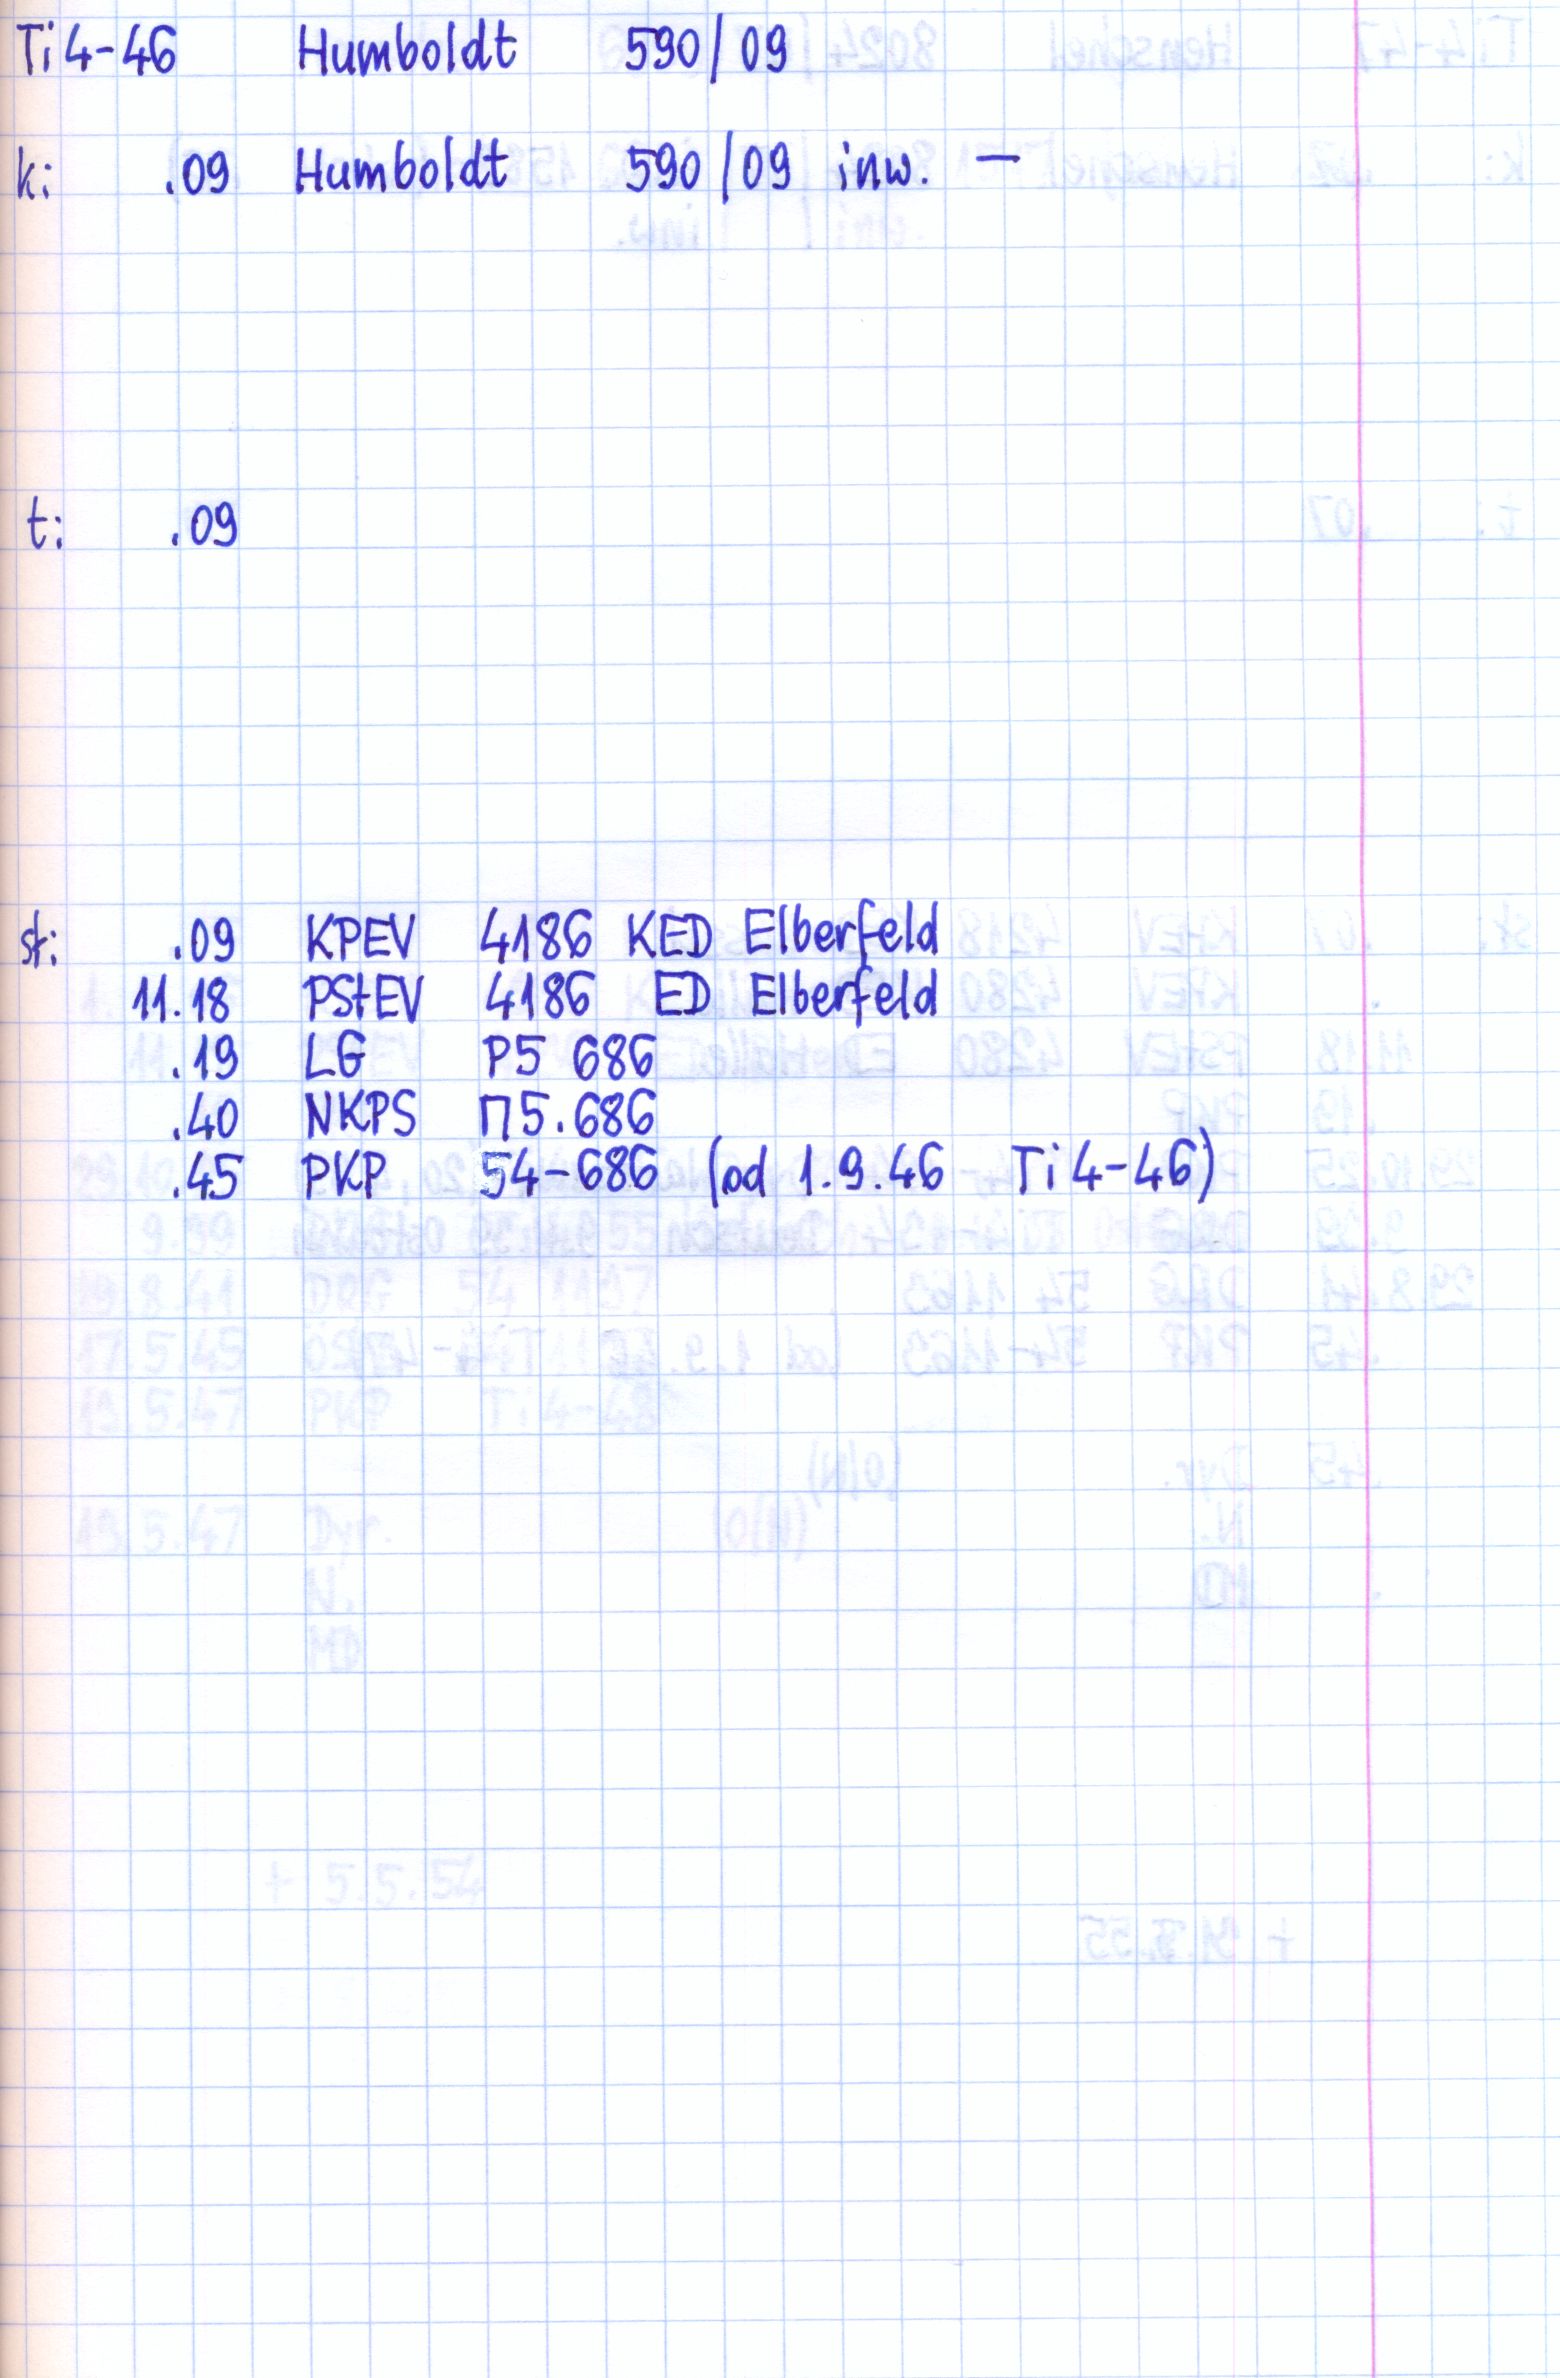 Ti4-46 Humboldt 590/09
k: .09 Humboldt 590/09 inw. —
t: .09
st: .09 KPEV 4186 KED Elberfeld
11.18 PStEV 4186 ED Elberfeld
.19 LG P5 686
.40 NKPS П5.686
.45 PKP 54-686 (od 1.9.46 Ti4-46)